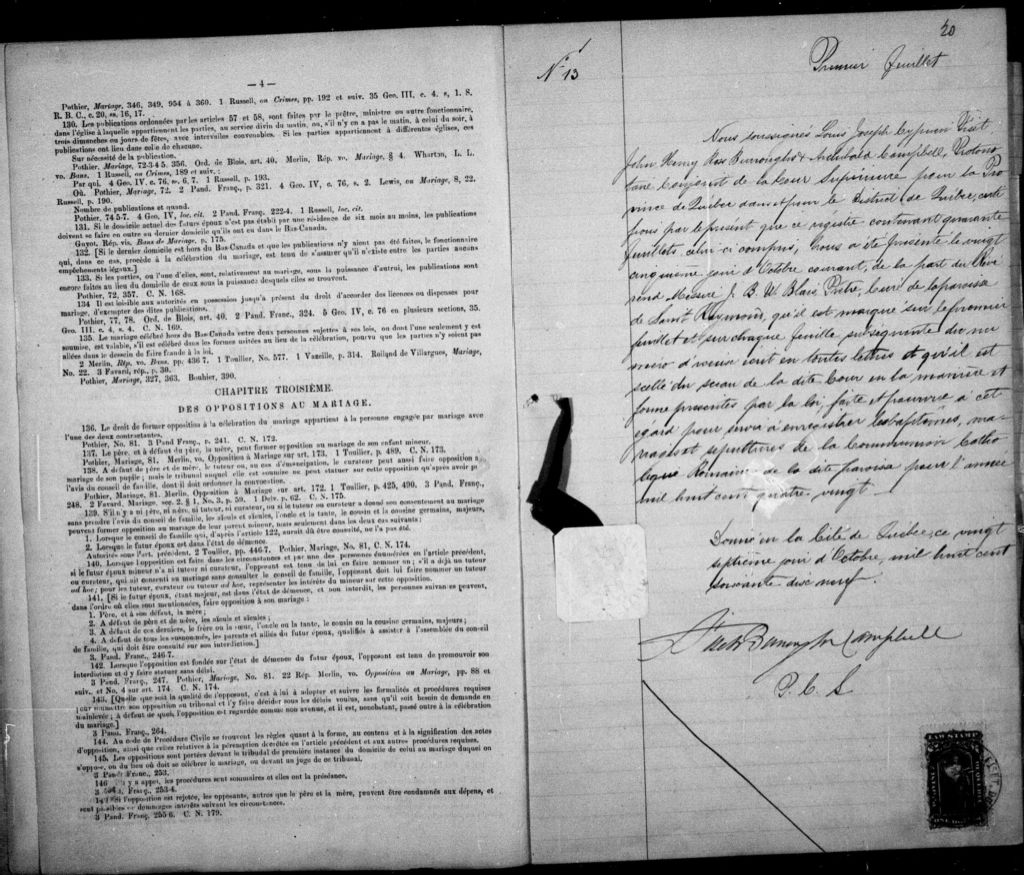 — 4 —
Pothier, Mariage, 346, 349, 954 à 360. 1 Russell, on Crimes, pp. 192 et suiv. 35 Geo. III, c. 4. s. 1. S.
R. B. C., c. 20, ss. 16, 17.
130. Les publications ordonnées par les articles 57 et 58, sont faites par le prêtre, ministre ou autre fonctionnaire,
dans l'église à laquelle appartiennent les parties, au service divin du matin, ou, s'il n'y en a pas le matin, à celui du soir, à
trois dimanches ou jours de fêtes, avec intervalles convenables. Si les parties appartiennent à différentes églises, ces
publications ont lieu dans celle de chacune.
Sur nécessité de la publication.
Pothier, Mariage, 72-3 4 5. 356. Ord. de Blois, art. 40. Merlin, Rép. vo. Mariage, § 4. Wharton, L. L.
vo. Bans. 1 Russell, on Crimes, 189 et suiv.:
Par qui. 4 Geo. IV, c. 76, ss. 6, 7. 1 Russell, p. 193.
Où. Pothier, Mariage, 72. 2 Pand. Franç., p. 321. 4 Geo. IV, c. 76, s. 2. Lewis, on Mariage, 8, 22.
Russell, p. 190.
Nombre de publications et quand.
Pothier, 74 5-7. 4 Geo. IV, loc. cit. 2 Pand. Franç. 222-4. 1 Russell, loc. cit.
131. Si le domicile actuel des futurs époux n'est pas établi par une résidence de six mois au moins, les publications
doivent se faire en outre au dernier domicile qu'ils ont eu dans le Bas-Canada.
Guyot, Rép. vis. Bans de Mariage, p. 175.
132. [Si le dernier domicile est hors du Bas-Canada et que les publications n'y aient pas été faites, le fonctionnaire
qui, dans ce cas, procède à la célébration du mariage, est tenu de s'assurer qu'il n'existe entre les parties aucuns
empêchements légaux.]
133. Si les parties, ou l'une d'elles, sont, relativement au mariage, sous la puissance d'autrui, les publications sont
encore faites au lieu du domicile de ceux sous la puissance desquels elles se trouvent.
Pothier, 72, 357. C. N. 168.
134 Il est loisible aux autorités en possession jusqu'à présent du droit d'accorder des licences ou dispenses pour
mariage, d'exempter des dites publications.
Pothier, 77, 78. Ord. de Blois, art. 40. 2 Pand. Franç., 324. 5 Geo. IV, c. 76 en plusieurs sections, 35.
Geo. III. c. 4, s. 4. C. N. 169.
135. Le mariage célébré hors du Bas-Canada entre deux personnes sujettes à ses lois, ou dont l'une seulement y est
soumise, est valable, s'il est célébré dans les formes usitées au lieu de la célébration, pourvu que les parties n'y soient pas
allées dans le dessein de faire fraude à la loi.
2 Merlin, Rép. vo. Bans, pp. 436 7. 1 Toullier, No. 577. 1 Vazeille, p. 314. Rolland de Villargues, Mariage,
No. 22. 3 Favard, rép., p. 30.
Pothier, Mariage, 327, 363. Bouhier, 390.
CHAPITRE TROISIÈME.
DES OPPOSITIONS AU MARIAGE.
136. Le droit de former opposition à la célébration du mariage appartient à la personne engagée par mariage avec
l'une des deux contractantes.
Pothier, No. 81. 3 Pand Franç., p. 241. C. N. 172.
137. Le père, et à défaut du père, la mère, peut former opposition au mariage de son enfant mineur.
Pothier, Mariage, 81. Merlin, vo. Opposition à Mariage sur art. 173. 1 Toullier, p. 489. C. N. 173.
138. A défaut de père et de mère, le tuteur ou, au cas d'émancipation, le curateur peut aussi former opposition au
mariage de son pupille; mais le tribunal auquel elle est soumise ne peut statuer sur cette opposition qu'après avoir pris
l'avis du conseil de famille, dont il doit ordonner la convocation.
Pothier, Mariage, 81. Merlin. vo. Opposition à Mariage sur art. 172. 1 Toullier, p. 425, 490. 3 Pand. Franç.,
248. 2 Favard, Mariage, sec. 2. § 1, No. 3, p. 59. 1 Delv. p. 62. C. N. 175.
139. S'il n'y a ni père, ni mère, ni tuteur, ni curateur, ou si le tuteur ou curateur a donné son consentement au mariage
sans prendre l'avis du conseil de famille, les aïeuls et aïeules, l'oncle et la tante, le cousin et la cousine germains, majeurs,
peuvent former opposition au mariage de leur parent mineur, mais seulement dans les deux cas suivants:
1. Lorsque le conseil de famille qui, d'après l'article 122, aurait dû être consulté, ne l'a pas été.
2. Lorsque le futur époux est dans l'état de démence.
Autorités sous l'art. précédent. 2 Toullier, pp. 446-7. Pothier, Mariage, No. 81, C. N. 174.
140. Lorsque opposition est faite dans les circonstances et par une des personnes énumérées en l'article précédent,
si le futur époux mineur n'a ni tuteur ni curateur, l'opposant est tenu de lui en faire nommer un; s'il a déjà un tuteur
ou curateur, qui ait consenti au mariage sans consulter le conseil de famille, l'opposant doit lui faire nommer un tuteur
ad hoc; pour les tuteur, curateur ou tuteur ad hoc, représenter les intérêts du mineur sur cette opposition.
141. [Si le futur époux, étant majeur, est dans l'état de démence, et non interdit, les personnes suivantes peuvent,
dans l'ordre où elles sont mentionnées, faire opposition à son mariage:
1. Père, et à son défaut, la mère;
2. A défaut de père et de mère, les aïeuls et aïeules;
3. A défaut de ces derniers, le frère ou la sœur, l'oncle ou la tante, le cousin ou la cousine germains, majeurs;
4. A défaut de tous les susnommés, les parents et alliés du futur époux, qualifiés à assister à l'assemblée du conseil
de famille, qui doit être consulté sur son interdiction.]
3. Pand. Franç., 246-7.
142. Lorsque l'opposition est fondée sur l'état de démence du futur époux, l'opposant est tenu de promouvoir son
interdiction et d'y faire statuer sans délai.
3 Pand. Franç., 247. Pothier, Mariage, No. 81. 22 Rép. Merlin, vo. Opposition au Mariage, pp. 88 et
suiv. et No. 4 sur art. 174. C. N. 174.
143. [Quelle que soit la qualité de l'opposant, c'est à lui à adopter et suivre les formalités et procédures requises
pour soumettre son opposition au tribunal et l'y faire décider sous les délais voulus, sans qu'il soit besoin de demande en
mainlevée; à défaut de quoi, l'opposition est regardée comme non avenue, et il est, nonobstant, passé outre à la célébration
du mariage.]
3 Pand. Franç., 264.
144. Au code de Procédure Civile se trouvent les règles quant à la forme, au contenu et à la signification des actes
d'opposition, ainsi que celles relatives à la péremption décrétée en l'article précédent et aux autres procédures requises.
145. Les oppositions sont portées devant le tribunal de première instance du domicile de celui au mariage duquel on
s'oppose, ou du lieu où doit se célébrer le mariage, ou devant un juge de ce tribunal.
3 Pand. Franc., 253.
146 y a appel, les procédures sont sommaires et elles ont la préséance.
3 Franç., 253-4.
147 Si l'opposition est rejetée, les opposants, autres que le père et la mère, peuvent être condamnés aux dépens, et
sont passibles de dommages intérêts suivant les circonstances.
3 Pand. Franç. 255-6. C. N. 179.
20
No 13
Premier feuillet
Nous soussignés Louis Joseph Cyprien Fiset
John Henry Ross Burroughs & Archibald Campbell, Protono
taire Conjoint de la Cour Supérieure pour la Pro
vince de Québec dans et pour le District de Québec, certi
fions par le présent que ce régistre contenant quarante
feuillets, celui ci compris, Nous a été présenté le vingt
cinquième jour d'Octobre courant, de la part du Révé
rend Messire J. B. U Blais Prêtre, Curé de la paroisse
de Saint Raymond, qu'il est marqué sur le premier
feuillet et sur chaque feuille subséquente du nu
méro d'iceux écrit en toutes lettres et qu'il est
scellé du sceau de la dite Cour en la manière et
forme prescrites par la loi, faite et pourvue à cet
egard pour servir à enregistrer les baptêmes, ma-
riages et sépultures de la Communion Catho
lique Romaine de la dite paroisse pour l'année
mil huit cent quatre vingt
Donné en la Cité de Québec, ce vingt
septième jour d'Octobre, mil huit cent
soixante dix neuf.
Fiset Burroughs Campbell
P. C. S
LAW STAMP